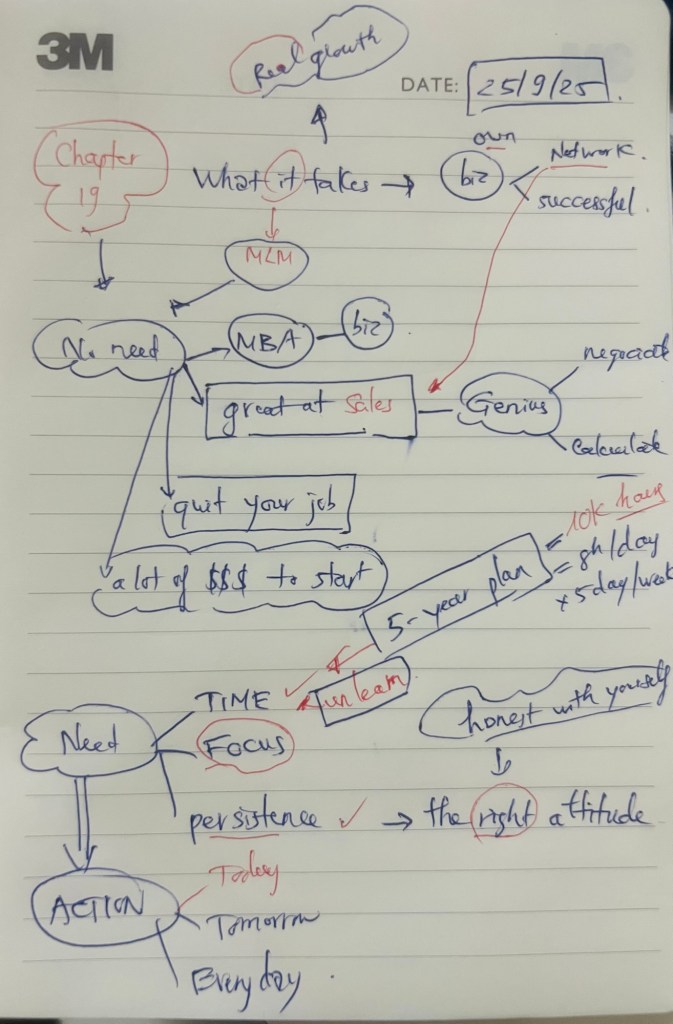 3M
Real growth
DATE: 25/9/25.
Chapter
19
What it takes → own biz
Network.
successful.
MLM
No need
MBA
biz
great at Sales
Genius
negociate
Calculate
quit your job
a lot of $$$ to start
5-year plan
= 10K hours
= 8h/day
x 5day/week
Need
TIME ✓
unlearn
FOCUS
honest with yourself
persistence ✓ → the right attitude
ACTION
Today
Tomorrow
Everyday.